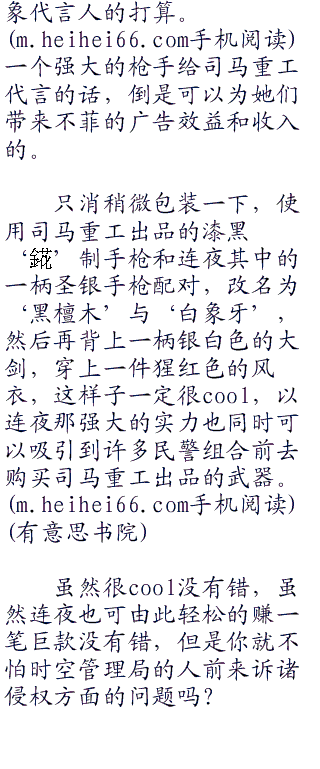 象代言人的打算。
(m.heihei66.com手机阅读)
一个强大的枪手给司马重工
代言的话，倒是可以为她们
带来不菲的广告效益和收入
的。
只消稍微包装一下，使
用司马重工出品的漆黑
‘’制手枪和连夜其中的
一柄圣银手枪配对，改名为
‘黑檀木’与‘白象牙’，
然后再背上一柄银白色的大
剑，穿上一件猩红色的风
衣，这样子一定很cool，以
连夜那强大的实力也同时可
以吸引到许多民警组合前去
购买司马重工出品的武器。
(m.heihei66.com手机阅读)
(有意思书院)
虽然很cool没有错，虽
然连夜也可由此轻松的赚一
笔巨款没有错，但是你就不
怕时空管理局的人前来诉诸
侵权方面的问题吗？